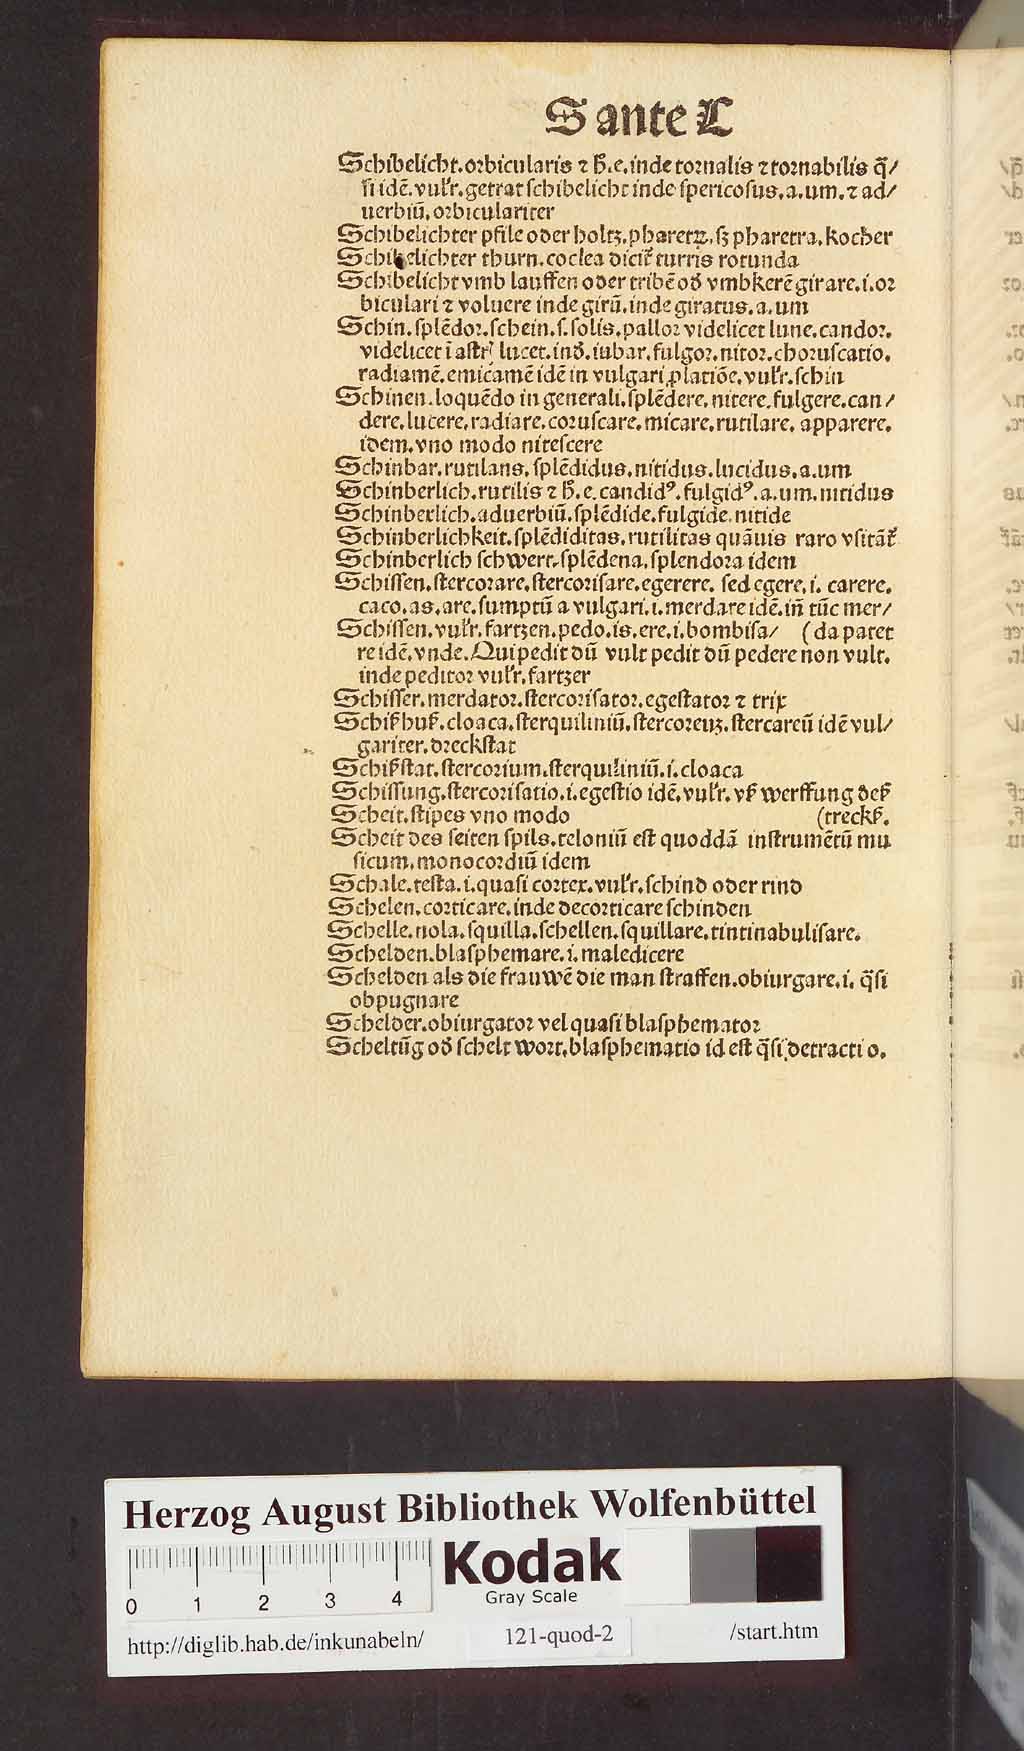 S ante L
Schibelicht. orbicularis ⁊ h̄. e. inde tornalis ⁊ tornabilis q̄/
si idē. vul'r. getrat schibelicht inde spericosus. a. um. ⁊ ad/
uerbiū. orbiculariter
Schibelichter pfile oder holtz. pharetꝝ. sꝫ pharetra. kocher
Schibelichter thurn. coclea dicit̄ turris rotunda
Schibelicht vmb lauffen oder tribē od̄ vmbkerē girare. i. or
biculari ⁊ voluere inde girū. inde giratus. a. um
Schin. splēdor. schein. s. solis. pallor videlicet lune. candor.
videlicet ī astr lucet. ind̄. iubar. fulgor. nitor. choruscatio.
radiamē. emicamē idē in vulgari ꝓlatiōe. vul'r. schin
Schinen. loquēdo in generali. splēdere. nitere. fulgere. can/
dere. lucere. radiare. coruscare. micare. rutilare. apparere.
idem. vno modo nitescere
Schinbar. rutilans. splēdidus. nitidus. lucidus. a. um
Schinberlich. rutilis ⁊ h̄. e. candidꝰ. fulgidꝰ. a. um. nitidus
Schinberlich. aduerbiū. splēdide. fulgide. nitide
Schinberlichkeit. splēdiditas. rutilitas quāuis raro vsitāt̄
Schinberlich schwert. splēdena. splendora idem
Schissen. stercorare. stercorisare. egerere. sed egere. i. carere.
caco. as. are. sumptū a vulgari. i. merdare idē. in̄ tūc mer/
Schissen. vul'r. fartzen. pedo. is. ere. i. bombisa/ (da patet
re idē. vnde. Qui pedit dū vult pedit dū pedere non vult.
inde peditor vul'r. fartzer
Schisser. merdator. stercorisator. egestator ⁊ trix
Schißhuß. cloaca. sterquiliniū. stercoreuꝫ. stercareū idē vul/
gariter. dreckstat
Schißstat. stercorium. sterquiliniū. i. cloaca
Schissung. stercorisatio. i. egestio idē. vul'r. vß werffung deß
Scheit. stipes vno modo (treckß.
Scheit des seiten spils. teloniū est quoddā instrumētū mu
sicum. monocordiū idem
Schale. testa. i. quasi cortex. vul'r. schind oder rind
Schelen. corticare. inde decorticare schinden
Schelle. nola. squilla. schellen. squillare. tintinabulisare.
Schelden. blasphemare. i. maledicere
Schelden als die frauwē die man straffen. obiurgare. i. q̄si
obpugnare
Schelder. obiurgator vel quasi blasphemator
Scheltūg od̄ schelt wort. blasphematio id est q̄si detractio.
Herzog August Bibliothek Wolfenbüttel
0 1 2 3 4
Kodak
Gray Scale
http://diglib.hab.de/inkunabeln/ 121-quod-2 /start.htm